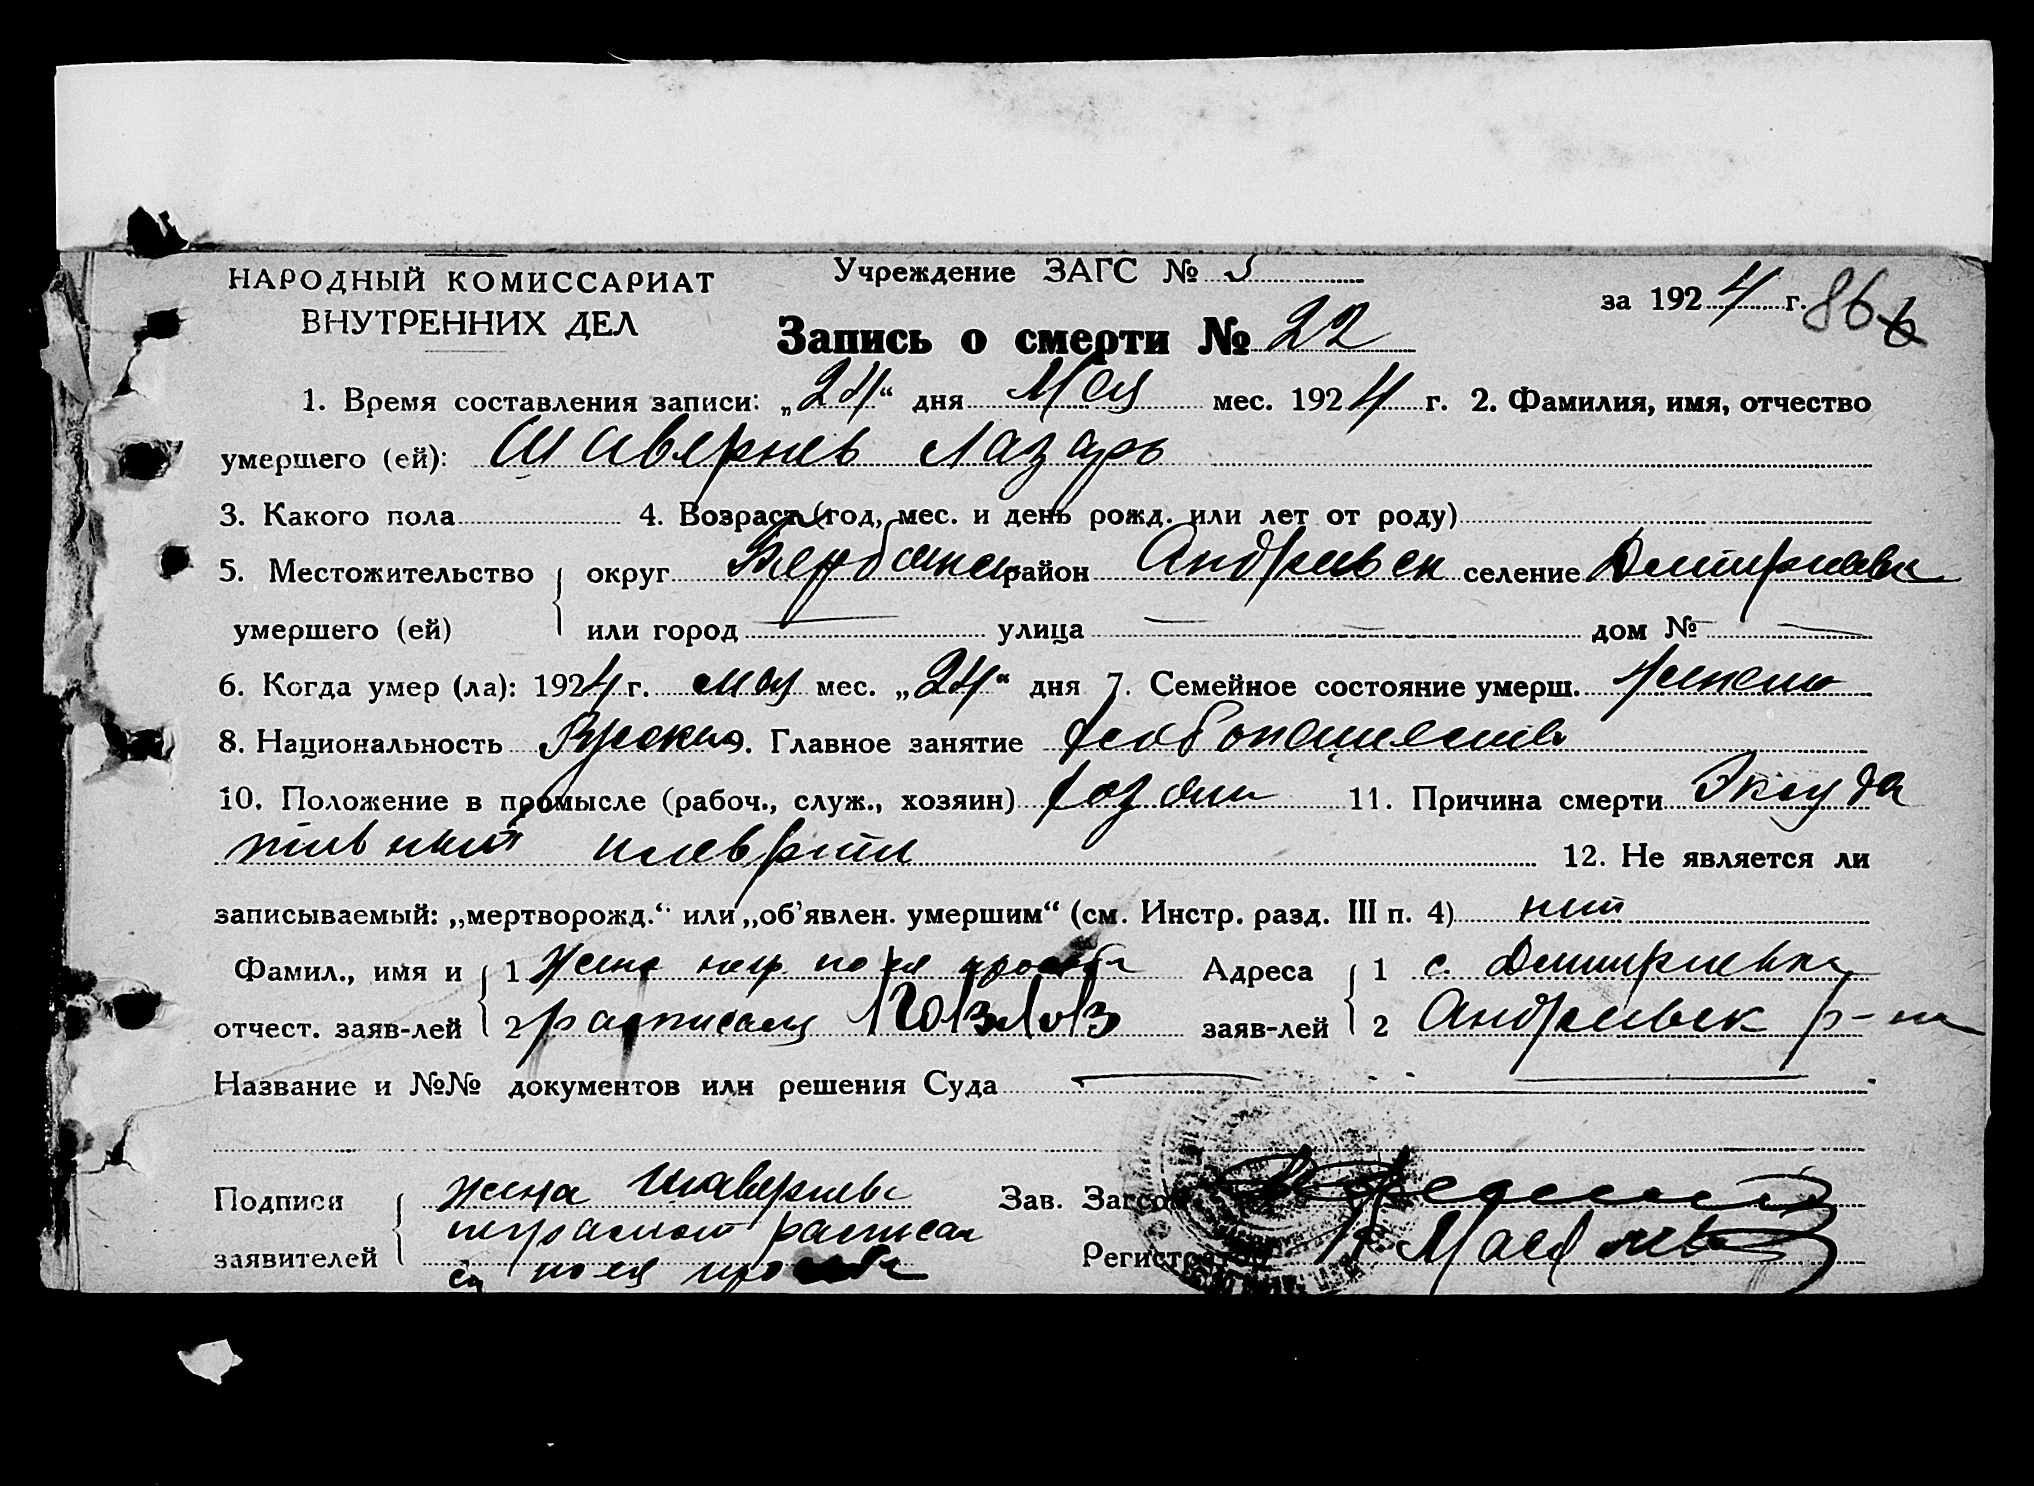 НАРОДНЫЙ КОМИССАРИАТ
ВНУТРЕННИХ ДЕЛ
Учреждение ЗАГС №
за 1924 г. 86
Запись о смерти № 22
1. Время составления записи: „24“ дня Мая мес. 1924 г. 2. Фамилия, имя, отчество
умершего (ей): Лазарь
3. Какого пола 4. Возраст (год, мес. и день рожд. или лет от роду)
5. Местожительство округ район Андреевск селение Дмитриевка
умершего (ей) или город — улица — — дом № —
6. Когда умер (ла): 1924 г. мая мес. „24“ дня 7. Семейное состояние умерш.
8. Национальность 9. Главное занятие хлебопашество
10. Положение в промысле (рабоч., служ., хозяин) хозяин 11. Причина смерти Эксуда
тивный плеврит 12. Не является ли
записываемый: „мертворожд.“ или „об’явлен. умершим“ (см. Инстр. разд. III п. 4) нет
Фамил., имя и 1 Жена негр. по ея просьбе Адреса 1 с. Дмитриевка
отчест. заяв-лей 2 расписался заяв-лей 2 Андреевск р-на
Название и №№ документов или решения Суда —
Подписи Жена
заявителей неграмот расписал
ся по ея просьбе
Зав. Загсом
Регистратор